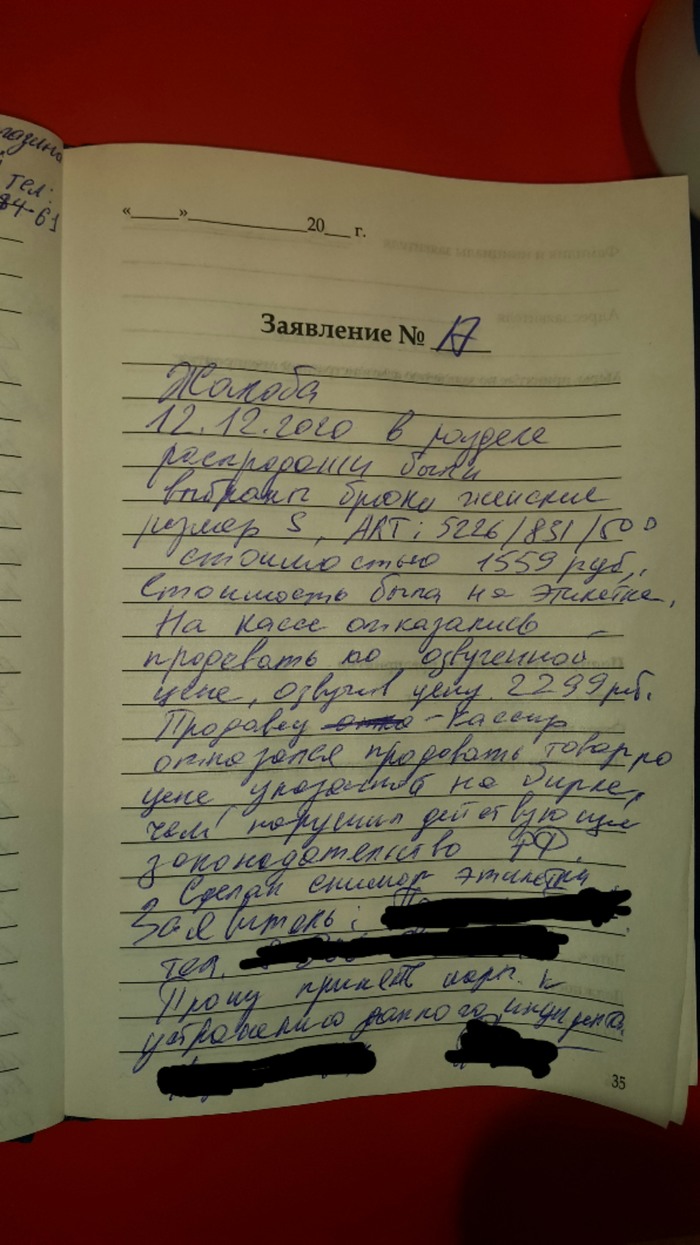 газина
тел:
84-61
«____»____________20___ г.
Заявление № 17
Жалоба
12.12.2020 в разделе
распродажи были
выбраны брюки женские
размер S, ART: 5226/831/500
стоимостью 1559 руб.
Стоимость была на этикетке.
На кассе отказались
продавать по озвученной
цене, озвучив цену 2299 руб.
Продавец -кассир
отказался продавать товар по
цене, указанной на бирке,
чем нарушил действующее
законодательство РФ.
Сделан снимок этикетки
Заявитель:
тел.
Прошу принять меры к
устранению данного инцидента
35